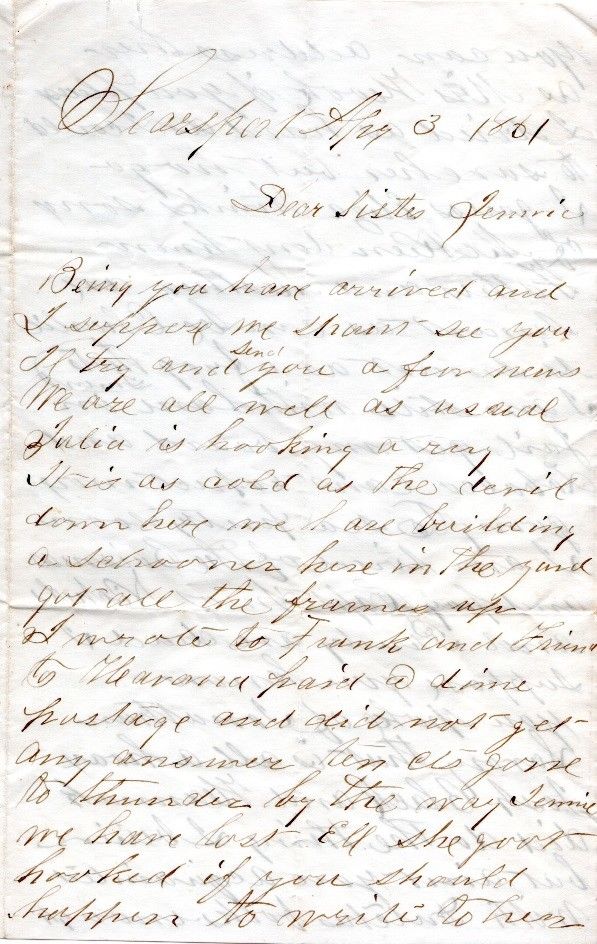 Searsport Apr 3 1861
Dear Sister Jennie
Being you have arrived and
I suppose we shant see you
Il try and send you a few news
We are all well as usual
Julia is hooking a rug
It is as cold as the devil
down here we hare building
a schooner here in the yard
got all the frames up
I wrote to Frank and
to Havana paid a dime
postage and did not get
any answer ten cts gone
to thunder by the way Jennie
we have lost Ell she goot
hooked if you should
happen to write to her